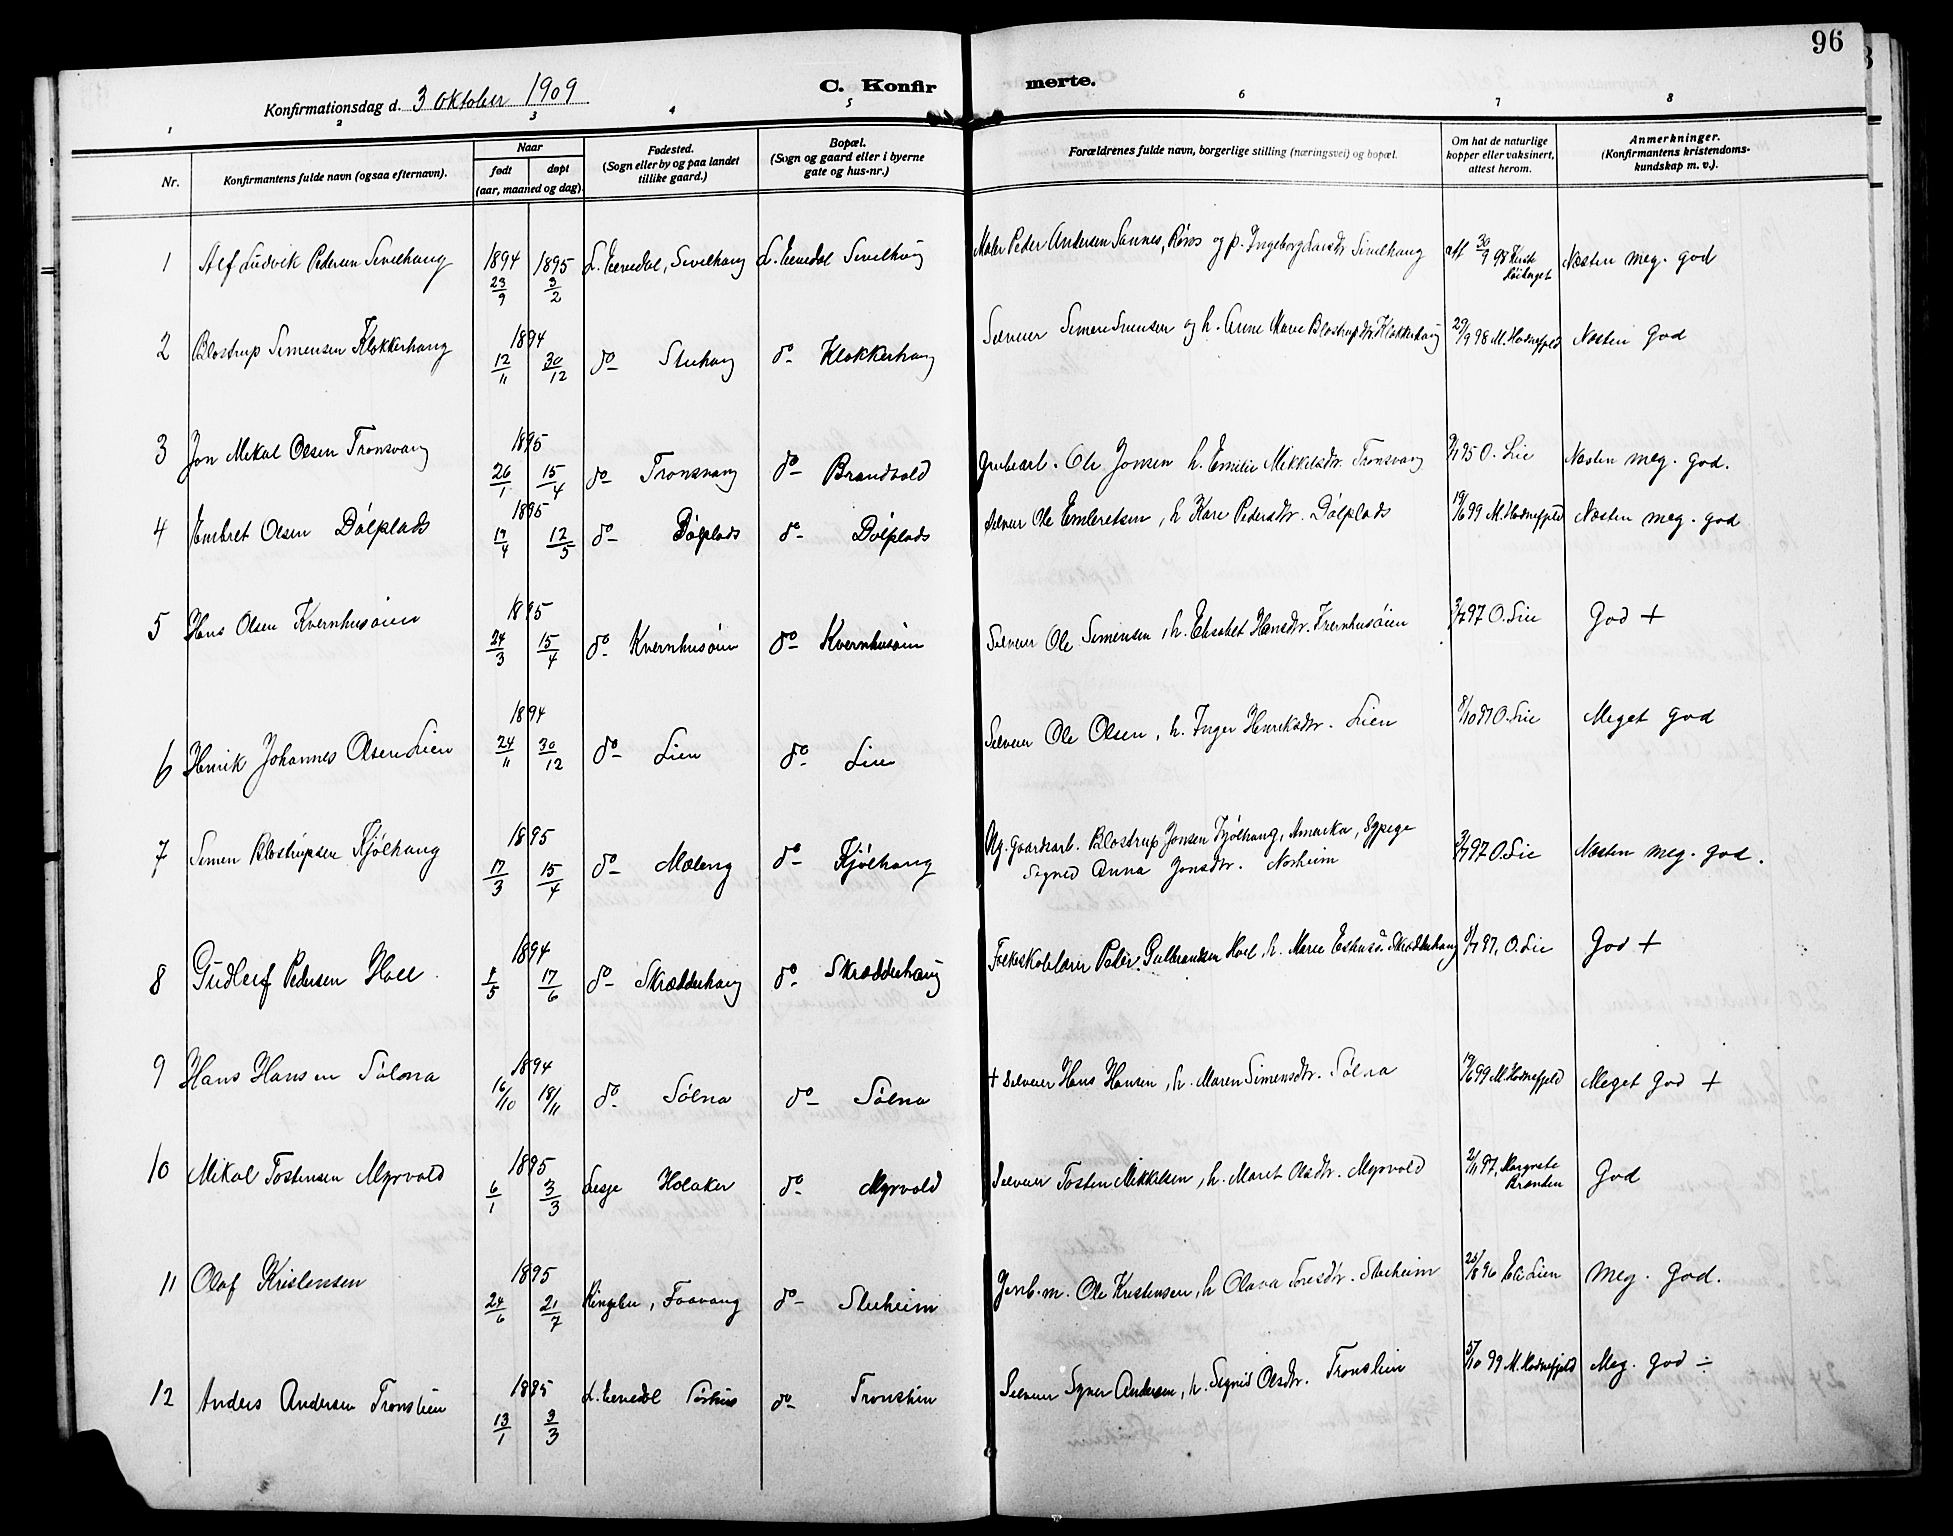 96
Konfirmationsdag d. 3 Oktober 1909
C. Konfir merte.
1 2 3 4 5 6 7 8
Nr. Konfirmantens fulde navn (ogsaa efternavn). Naar født døpt (aar, maaned og dag). Fødested. (Sogn eller by og paa landet tillike gaard.) Bopæl. (Sogn og gaard eller i byerne gate og hus-nr.) Forældrenes fulde navn, borgerlige stilling (næringsvei) og bopæl. Om hat de naturlige kopper eller vaksinert, attest herom. Anmerkninger. (Konfirmantens kristendoms-kundskap m. v.).
1 Alf Ludvik Pedersen Sivilhaug 1894 23/9 1895 3/2 Sivilhaug Sivilhaug Maler Peder Andersen Sannes, Røros og p. Ingeborg Sivilhaug att 30/9 98 Næsten meg. god
2 Blostrup Simensen Klokkerhaug 1894 12/11 30/12 do Stuhaug do Klokkerhaug Selveier Simen Simensen og h. Anne Marie Blostrupdtr. Klokkerhaug 29/9 98 M. Hodnefjeld Næsten god
3 Jon Mikal Olsen Tronsvang 1895 26/1 15/4 do Tronsvang do Brandvold Ole Jonsen h. Emilie Mikkelsdtr. Tronsvang 95 O. Lie Næsten meg. god.
4 Embret Olsen Dølplads 1895 19/4 12/5 do Dølplads do Dølplads Selveier Ole Embretsen, h. Kari Pedersdtr. Dølplads 19/6 99 M. Hodnefjeld Næsten meg. god
5 Hans Olsen Kvernhusøien 1895 24/3 15/4 do Kvernhusøien do Kvernhusøien Selveier Ole Simensen, h. Elisabet Hansdtr. Kvernhusøien 97 O. Lie God +
6 Henrik Johannes Olsen Lien 1894 24/11 30/12 do Lien do Lien Selveier Ole Olsen, h. Inger Henriksdtr. Lien 8/10 97 O. Lie Meget god
7 Simen Blostrupsen Kjølhaug 1895 17/3 15/4 do Moleng do Kjølhaug Ug. Gaardsarb. Blostrup Jonsen Kjølhaug, Amerika, Sypige
Anna Jonsdtr. Norheim 97 O. Lie Næsten meg. god.
8 Gudleif Pedersen Hoel. 1894 1/5 17/6 do Skrædderhaug do Skrædderhaug Folkeskolelærer Peder Gulbrandsen Hoel, h. Marie Skrædderhaug 97, O. Lie God +
9 Hans Hansen Sølna 1894 16/10 18/11 do Sølna do Sølna + Selveier Hans Hansen, h. Maren Simensdtr. Sølna 19/6 99 M. Hodnefjeld Meget god +
10 Mikal Tostensen Myrvold 1895 6/1 3/3 Lesje Holaker do Myrvold Selveier Tosten Mikkelsen, h. Marit Olsdtr. Myrvold 2/11 97, Margrete Brænden God
11 Olaf Kristensen 1895 24/6 21/7 Ringebu, Faavang do Stuheim Ole Kristensen, h. Olava Toresdtr. Stuheim 96 Eli Lien Meg. god.
12 Anders Andersen Tronslien 1895 13/1 3/3 do Tronslien Selveier Andersen, h. Signid Olsdtr. Tronslien 5/10 99 M. Hodnefjeld Meg. god ÷